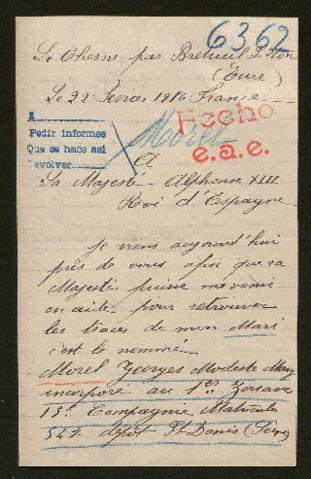 6362
Le Chesne par Breteuil s. Iton
(Eure)
Le 22 1916 France
Fecho
e.a.e.
A
Pedir informes
Que se hace así
Devolver
Morel
A
Sa Majesté Alphonse XIII
Roi d'Espagne
je viens aujourd'hui
près de vous afin que sa
Majesté puisse me venir
en aide pour retrouver
les traces de mon Mari
c'est le nommé
Morel Georges Modeste
incorporé au 1er Zouave
15e Compagnie Matricule
547 dépôt St Denis (Seine)